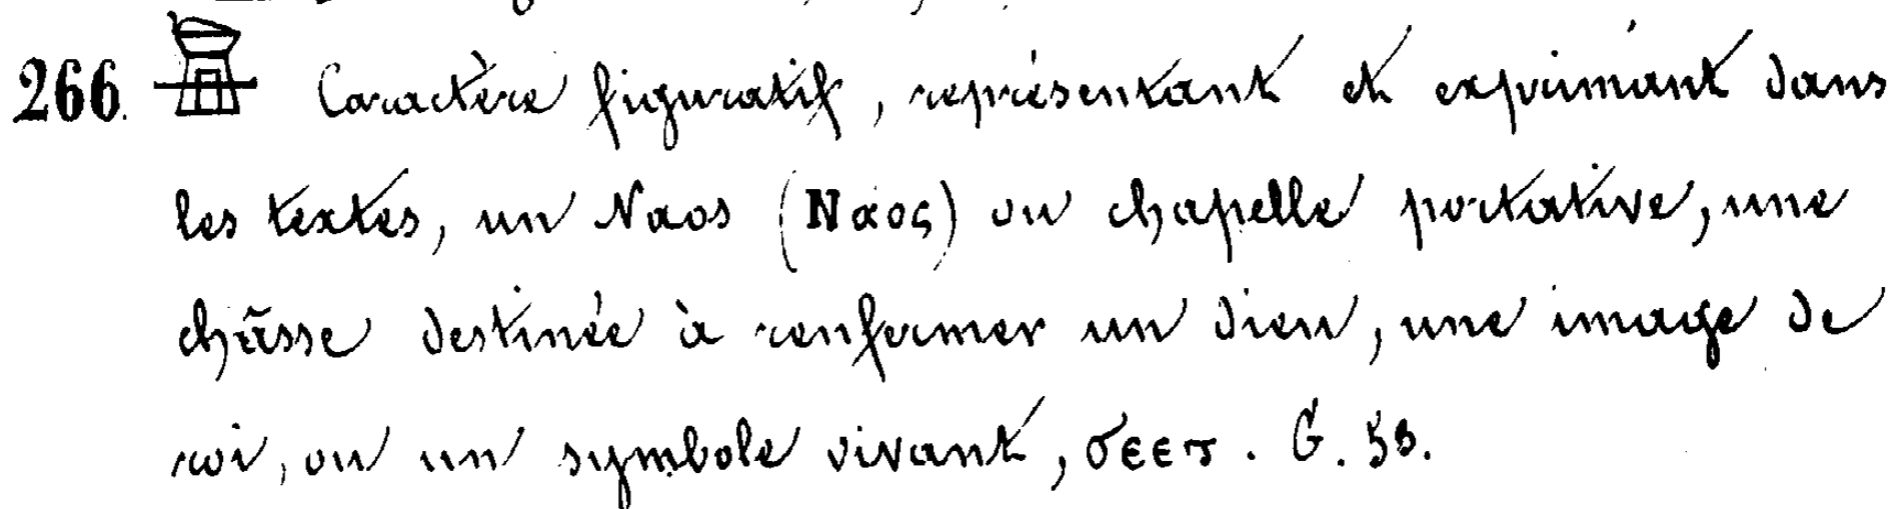 266. Caractère figuratif, représentant et exprimant dans
les textes, un Naos (Ναος) ou chapelle portative, une
châsse destinée à renfermer un dieu, une image de
roi, ou un symbole vivant, . G.